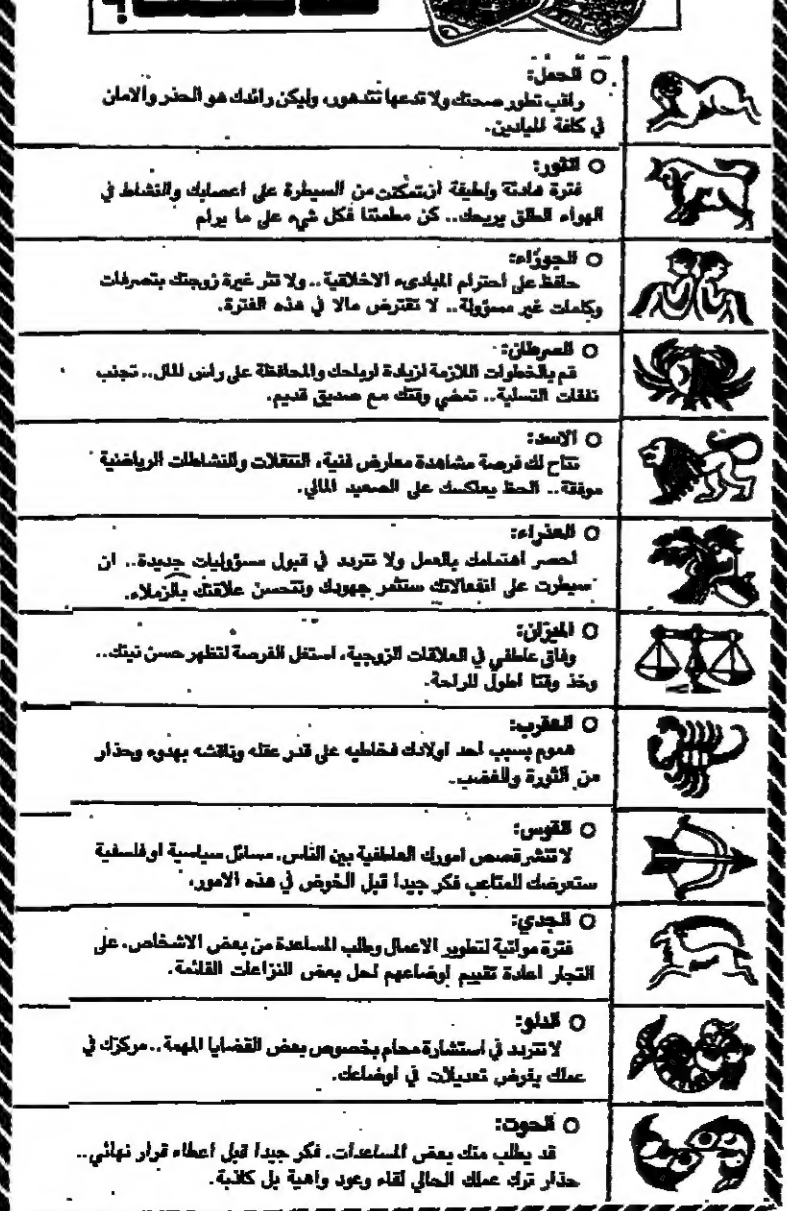 ○ الحمل:
راقب تطور صحتك ولا تدعها تتدهور، وليكن رائدك هو الحذر والامان
في كافة الميادين.
○ الثور:
فترة هادئة ولطيفة ان تمكنت من السيطرة على اعصابك والنشاط في
الهواء الطلق يريحك.. كن مطمئنا فكل شيء على ما يرام
○ الجوزاء:
حافظ على احترام المبادىء الاخلاقية.. ولا تثر غيرة زوجتك بتصرفات
وكلمات غير مسؤولة.. لا تقترض مالا في هذه الفترة.
○ السرطان:
قم بالخطوات اللازمة لزيادة ارباحك والمحافظة على راس المال.. تجنب
نفقات التسلية.. تمضي وقتك مع صديق قديم.
○ الاسد:
تتاح لك فرصة مشاهدة معارض فنية، التنقلات والنشاطات الرياضية
موفقة.. الحظ يعاكسك على الصعيد المالي.
○ العذراء:
احصر اهتمامك بالعمل ولا تتردد في قبول مسؤوليات جديدة.. ان
سيطرت على انفعالاتك ستثمر جهودك وتتحسن علاقتك بالزملاء.
○ الميزان:
وفاق عاطفي في العلاقات الزوجية، استغل الفرصة لتظهر حسن نيتك..
وخذ وقتا اطول للراحة.
○ العقرب:
هموم بسبب احد اولادك فخاطبه على قدر عقله وناقشه بهدوء وحذار
من الثورة والغضب.
○ القوس:
لا تنشر قصص امورك العاطفية بين الناس. مسائل سياسية او فلسفية
ستعرضك للمتاعب فكر جيدا قبل الخوض في هذه الامور.
○ الجدي:
فترة مواتية لتطوير الاعمال وطلب المساعدة من بعض الاشخاص. على
التجار اعادة تقييم اوضاعهم لحل بعض النزاعات القائمة.
○ الدلو:
لا تتردد في استشارة محام بخصوص بعض القضايا المهمة.. مركزك في
عملك يفرض تعديلات في اوضاعك.
○ الحوت:
قد يطلب منك بعض المساعدات. فكر جيدا قبل اعطاء قرار نهائي..
حذار ترك عملك الحالي لقاء وعود واهية بل كاذبة.